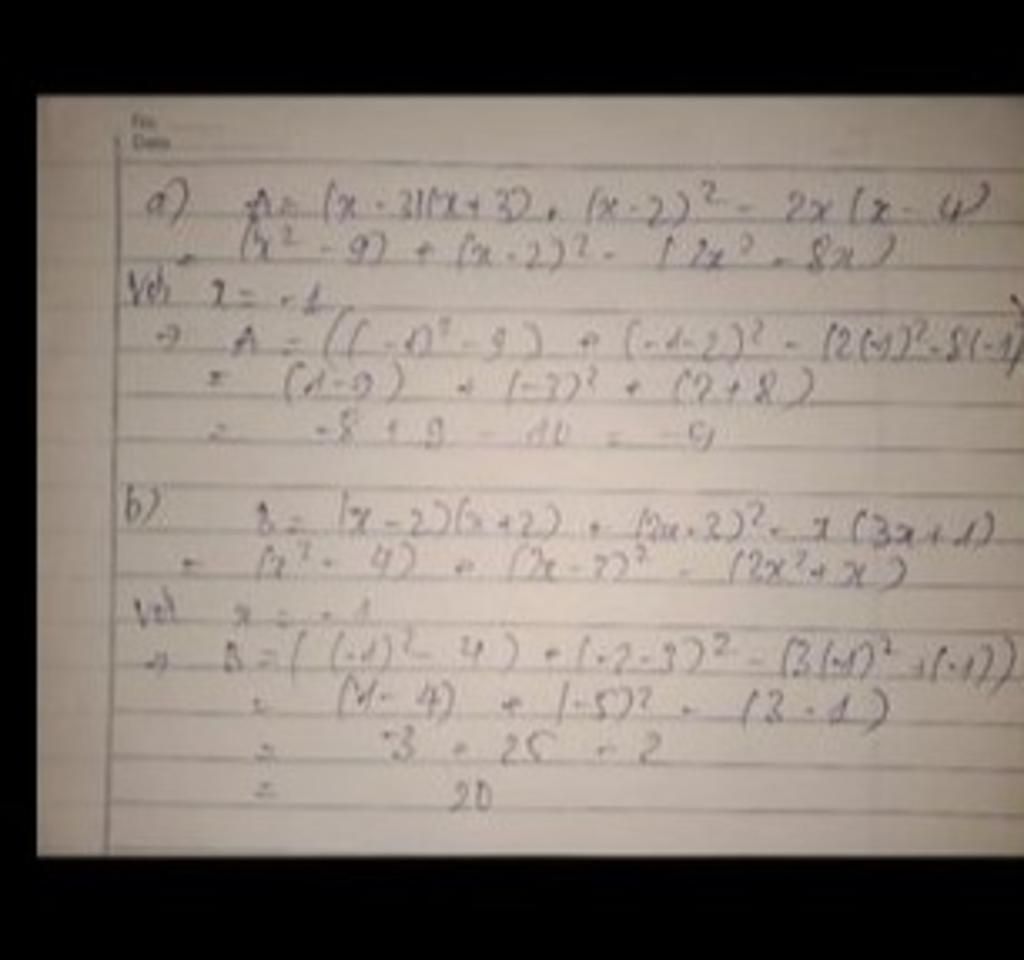 No.
Date
a) A = (x - 3)(x + 3) + (x - 2)² - 2x (x - 4)
= (x² - 9) + (x - 2)² - (2x² - 8x)
Với x = -1
→ A = ((-1)² - 9) + (-1 - 2)² - (2(-1)² - 8(-1))
= (1 - 9) + (-3)² + (2 + 8)
= -8 + 9 - 10 = -9
b) B = (x - 2)(x + 2) + (2x - 3)² - x (3x + 1)
= (x² - 4) + (2x - 3)² - (3x² + x)
Với x = -1
→ B = ((-1)² - 4) + (-2 - 3)² - (3(-1)² + (-1))
= (1 - 4) + (-5)² - (3 - 1)
= -3 + 25 - 2
= 20